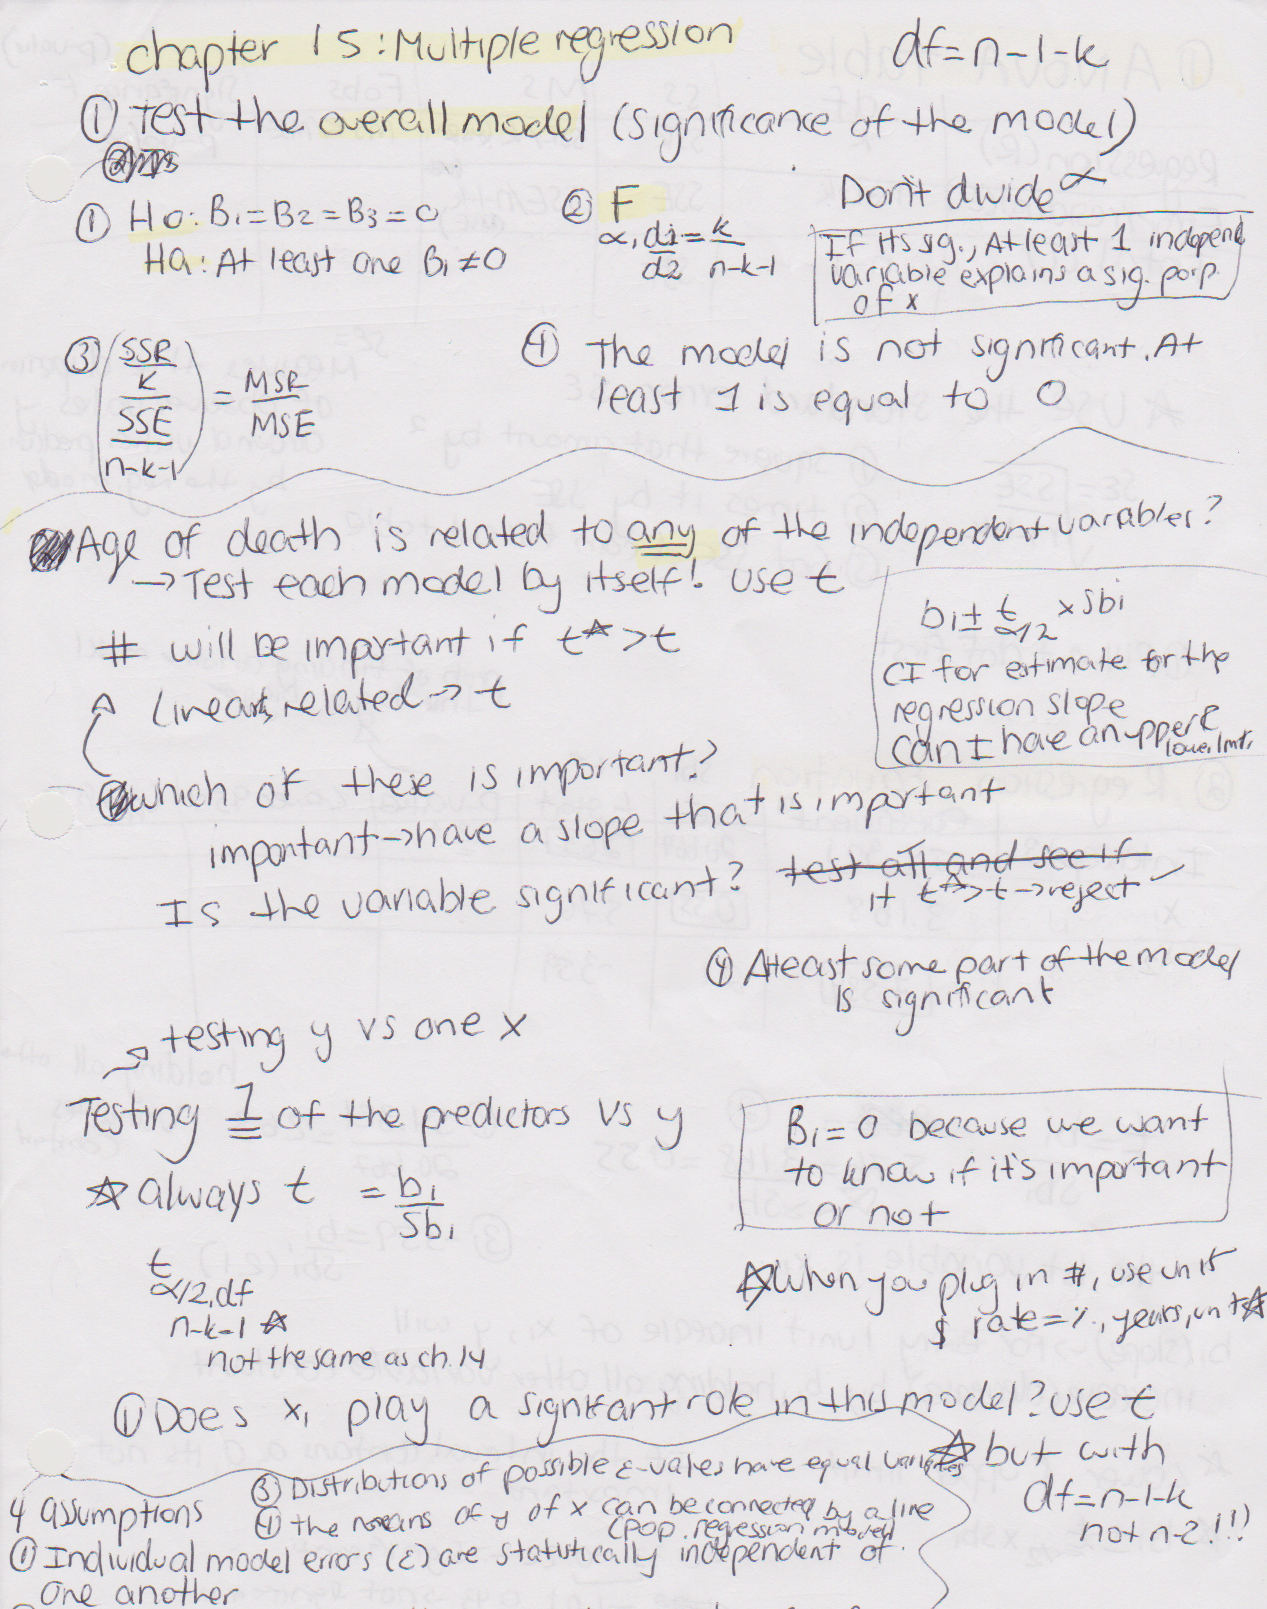 chapter 15: Multiple regression
df = n-1-k
① Test the overall model (significance of the model)
① Ho: B1 = B2 = B3 = 0
Ha: At least one Bi ≠ 0
② F
α, d1 = k
d2 n-k-1
Don't divide α
If its sig., At least 1 independ
variable explains a sig. porp.
of x
③ (SSR
K
SSE
n-k-1) = MSR
MSE
④ The model is not significant. At
least 1 is equal to 0
Age of death is related to any of the independent variables?
→ Test each model by itself! use t
# will be important if t☆ > t
Linearly related → t
bi ± t α/2 x sbi
CI for estimate for the
regression slope
Can I have an upper &
lower lmt,
which of these is important?
important → have a slope that is important
Is the variable significant? test all and see if
if t☆ > t → reject ✓
④ Atleast some part of the model
is significant
testing y vs one x
Testing 1 of the predictors vs y
☆ always t = bi
sbi
t
α/2, df
n-k-1 ☆
not the same as ch. 14
Bi = 0 because we want
to know if it's important
or not
☆ When you plug in #, use unit
$ rate = %, years, unt ☆
① Does x, play a significant role in this model? use t
☆ but with
df = n-1-k
not n-2!!!
4 assumptions
③ Distributions of possible ε-vales have equal
④ the means of y of x can be connected by a line
(pop. regression model)
① Individual model errors (ε) are statistically independent of
one another